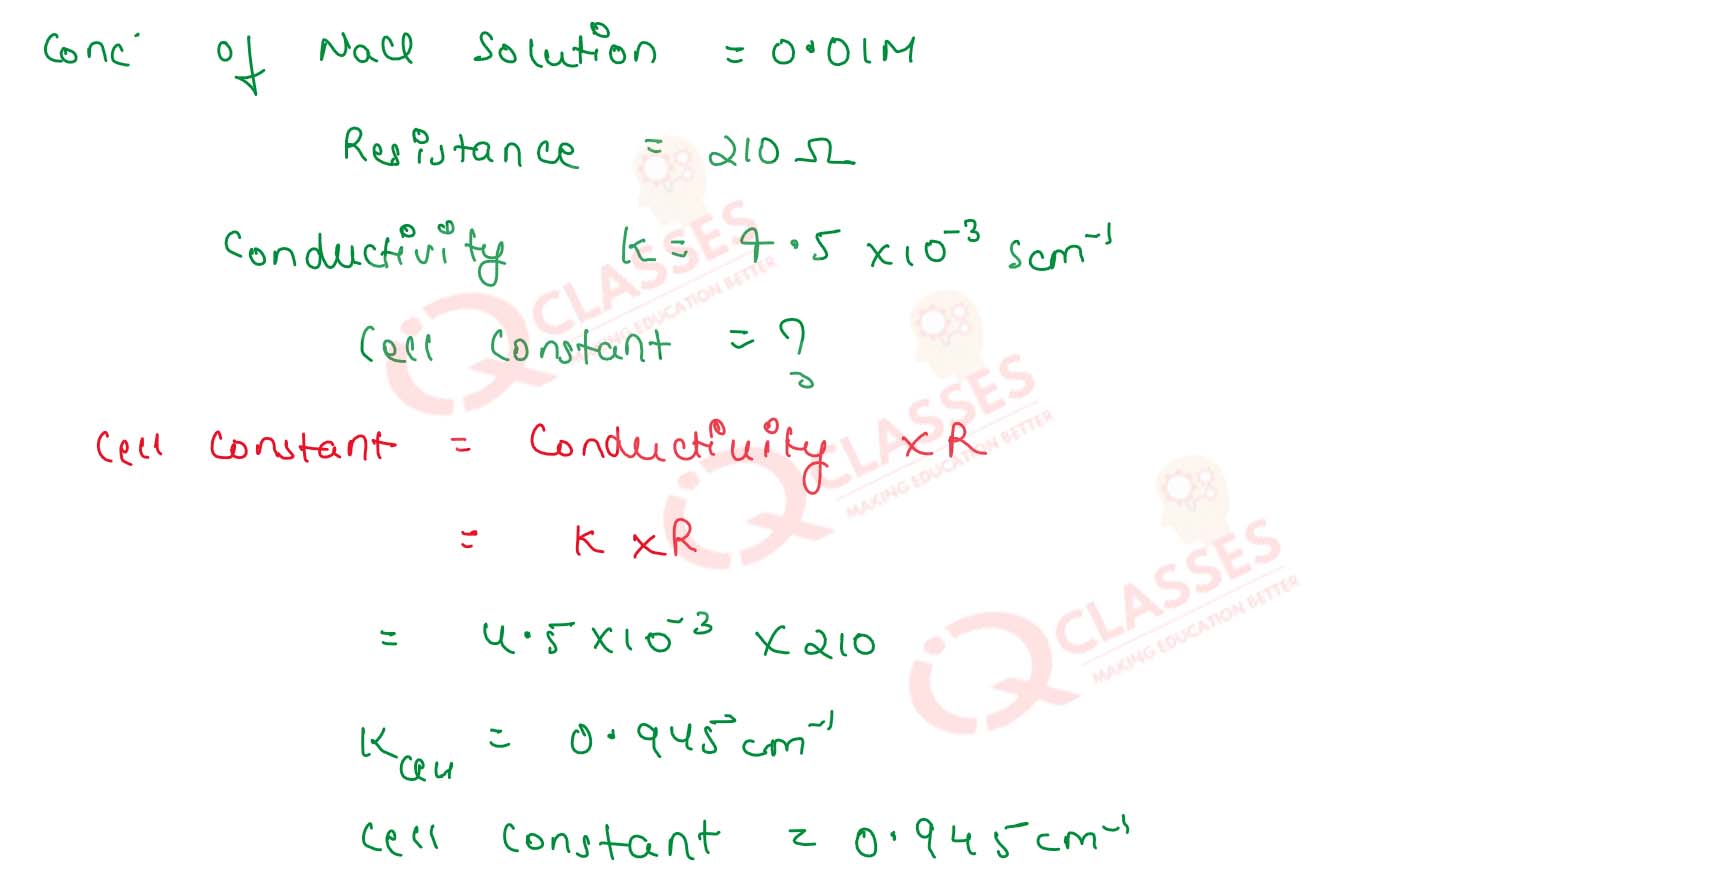 Conc. of NaCl Solution = 0.01M
Resistance = 210 Ω
Conductivity k = 4.5 × 10⁻³ Scm⁻¹
Cell Constant = ?
Cell Constant = Conductivity × R
= K × R
= 4.5 × 10⁻³ × 210
Kcell = 0.945 cm⁻¹
Cell Constant = 0.945 cm⁻¹
iQ CLASSES
MAKING EDUCATION BETTER
iQ CLASSES
MAKING EDUCATION BETTER
iQ CLASSES
MAKING EDUCATION BETTER